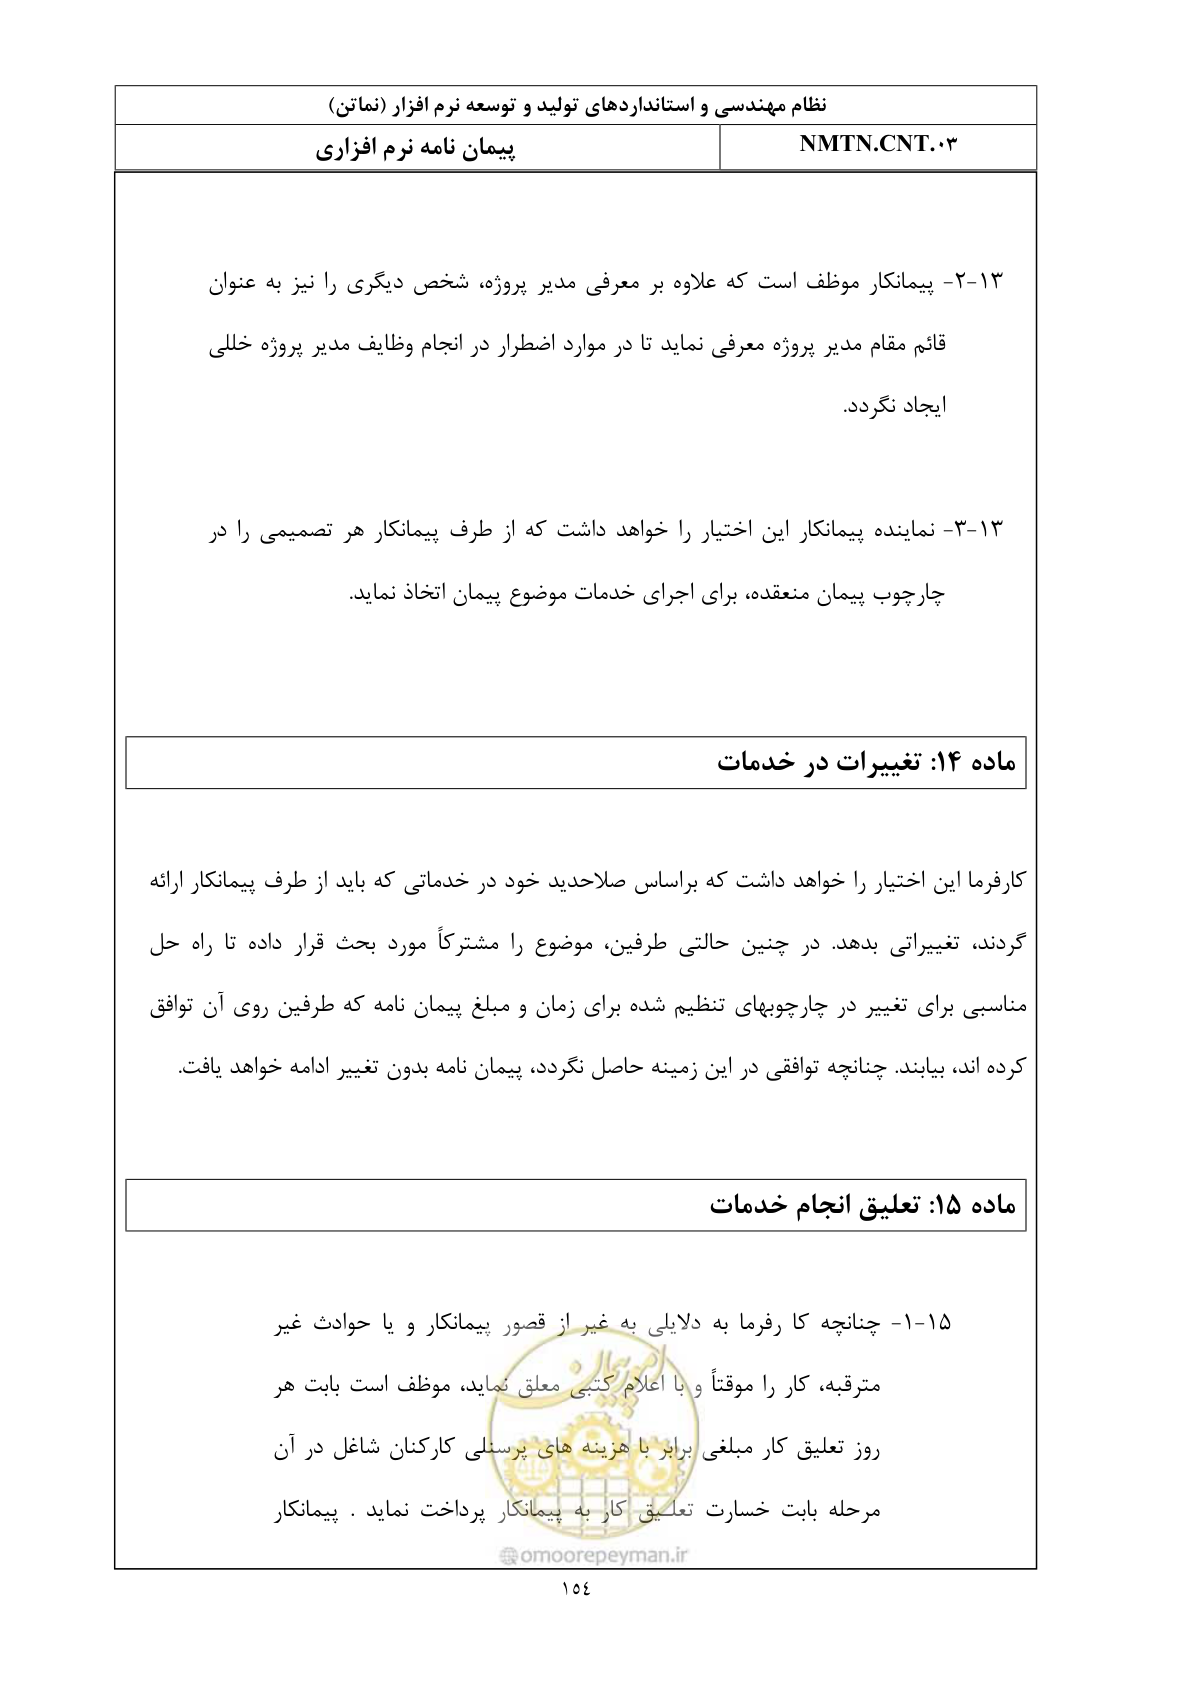 نظام مهندسی و استانداردهای تولید و توسعه نرم افزار (نماتن)
NMTN.CNT.۰۳
پیمان نامه نرم افزاری
۱۳-۲- پیمانکار موظف است که علاوه بر معرفی مدیر پروژه، شخص دیگری را نیز به عنوان
قائم مقام مدیر پروژه معرفی نماید تا در موارد اضطرار در انجام وظایف مدیر پروژه خللی
ایجاد نگردد.
۱۳-۳- نماینده پیمانکار این اختیار را خواهد داشت که از طرف پیمانکار هر تصمیمی را در
چارچوب پیمان منعقده، برای اجرای خدمات موضوع پیمان اتخاذ نماید.
ماده ۱۴: تغییرات در خدمات
کارفرما این اختیار را خواهد داشت که براساس صلاحدید خود در خدماتی که باید از طرف پیمانکار ارائه
گردند، تغییراتی بدهد. در چنین حالتی طرفین، موضوع را مشترکاً مورد بحث قرار داده تا راه حل
مناسبی برای تغییر در چارچوبهای تنظیم شده برای زمان و مبلغ پیمان نامه که طرفین روی آن توافق
کرده اند، بیابند. چنانچه توافقی در این زمینه حاصل نگردد، پیمان نامه بدون تغییر ادامه خواهد یافت.
ماده ۱۵: تعلیق انجام خدمات
۱۵-۱- چنانچه کا رفرما به دلایلی به غیر از قصور پیمانکار و یا حوادث غیر
مترقبه، کار را موقتاً و با اعلام کتبی معلق نماید، موظف است بابت هر
روز تعلیق کار مبلغی برابر با هزینه های پرسنلی کارکنان شاغل در آن
مرحله بابت خسارت تعلیق کار به پیمانکار پرداخت نماید . پیمانکار
امور پیمان
@omoorepeyman.ir
١٥٤